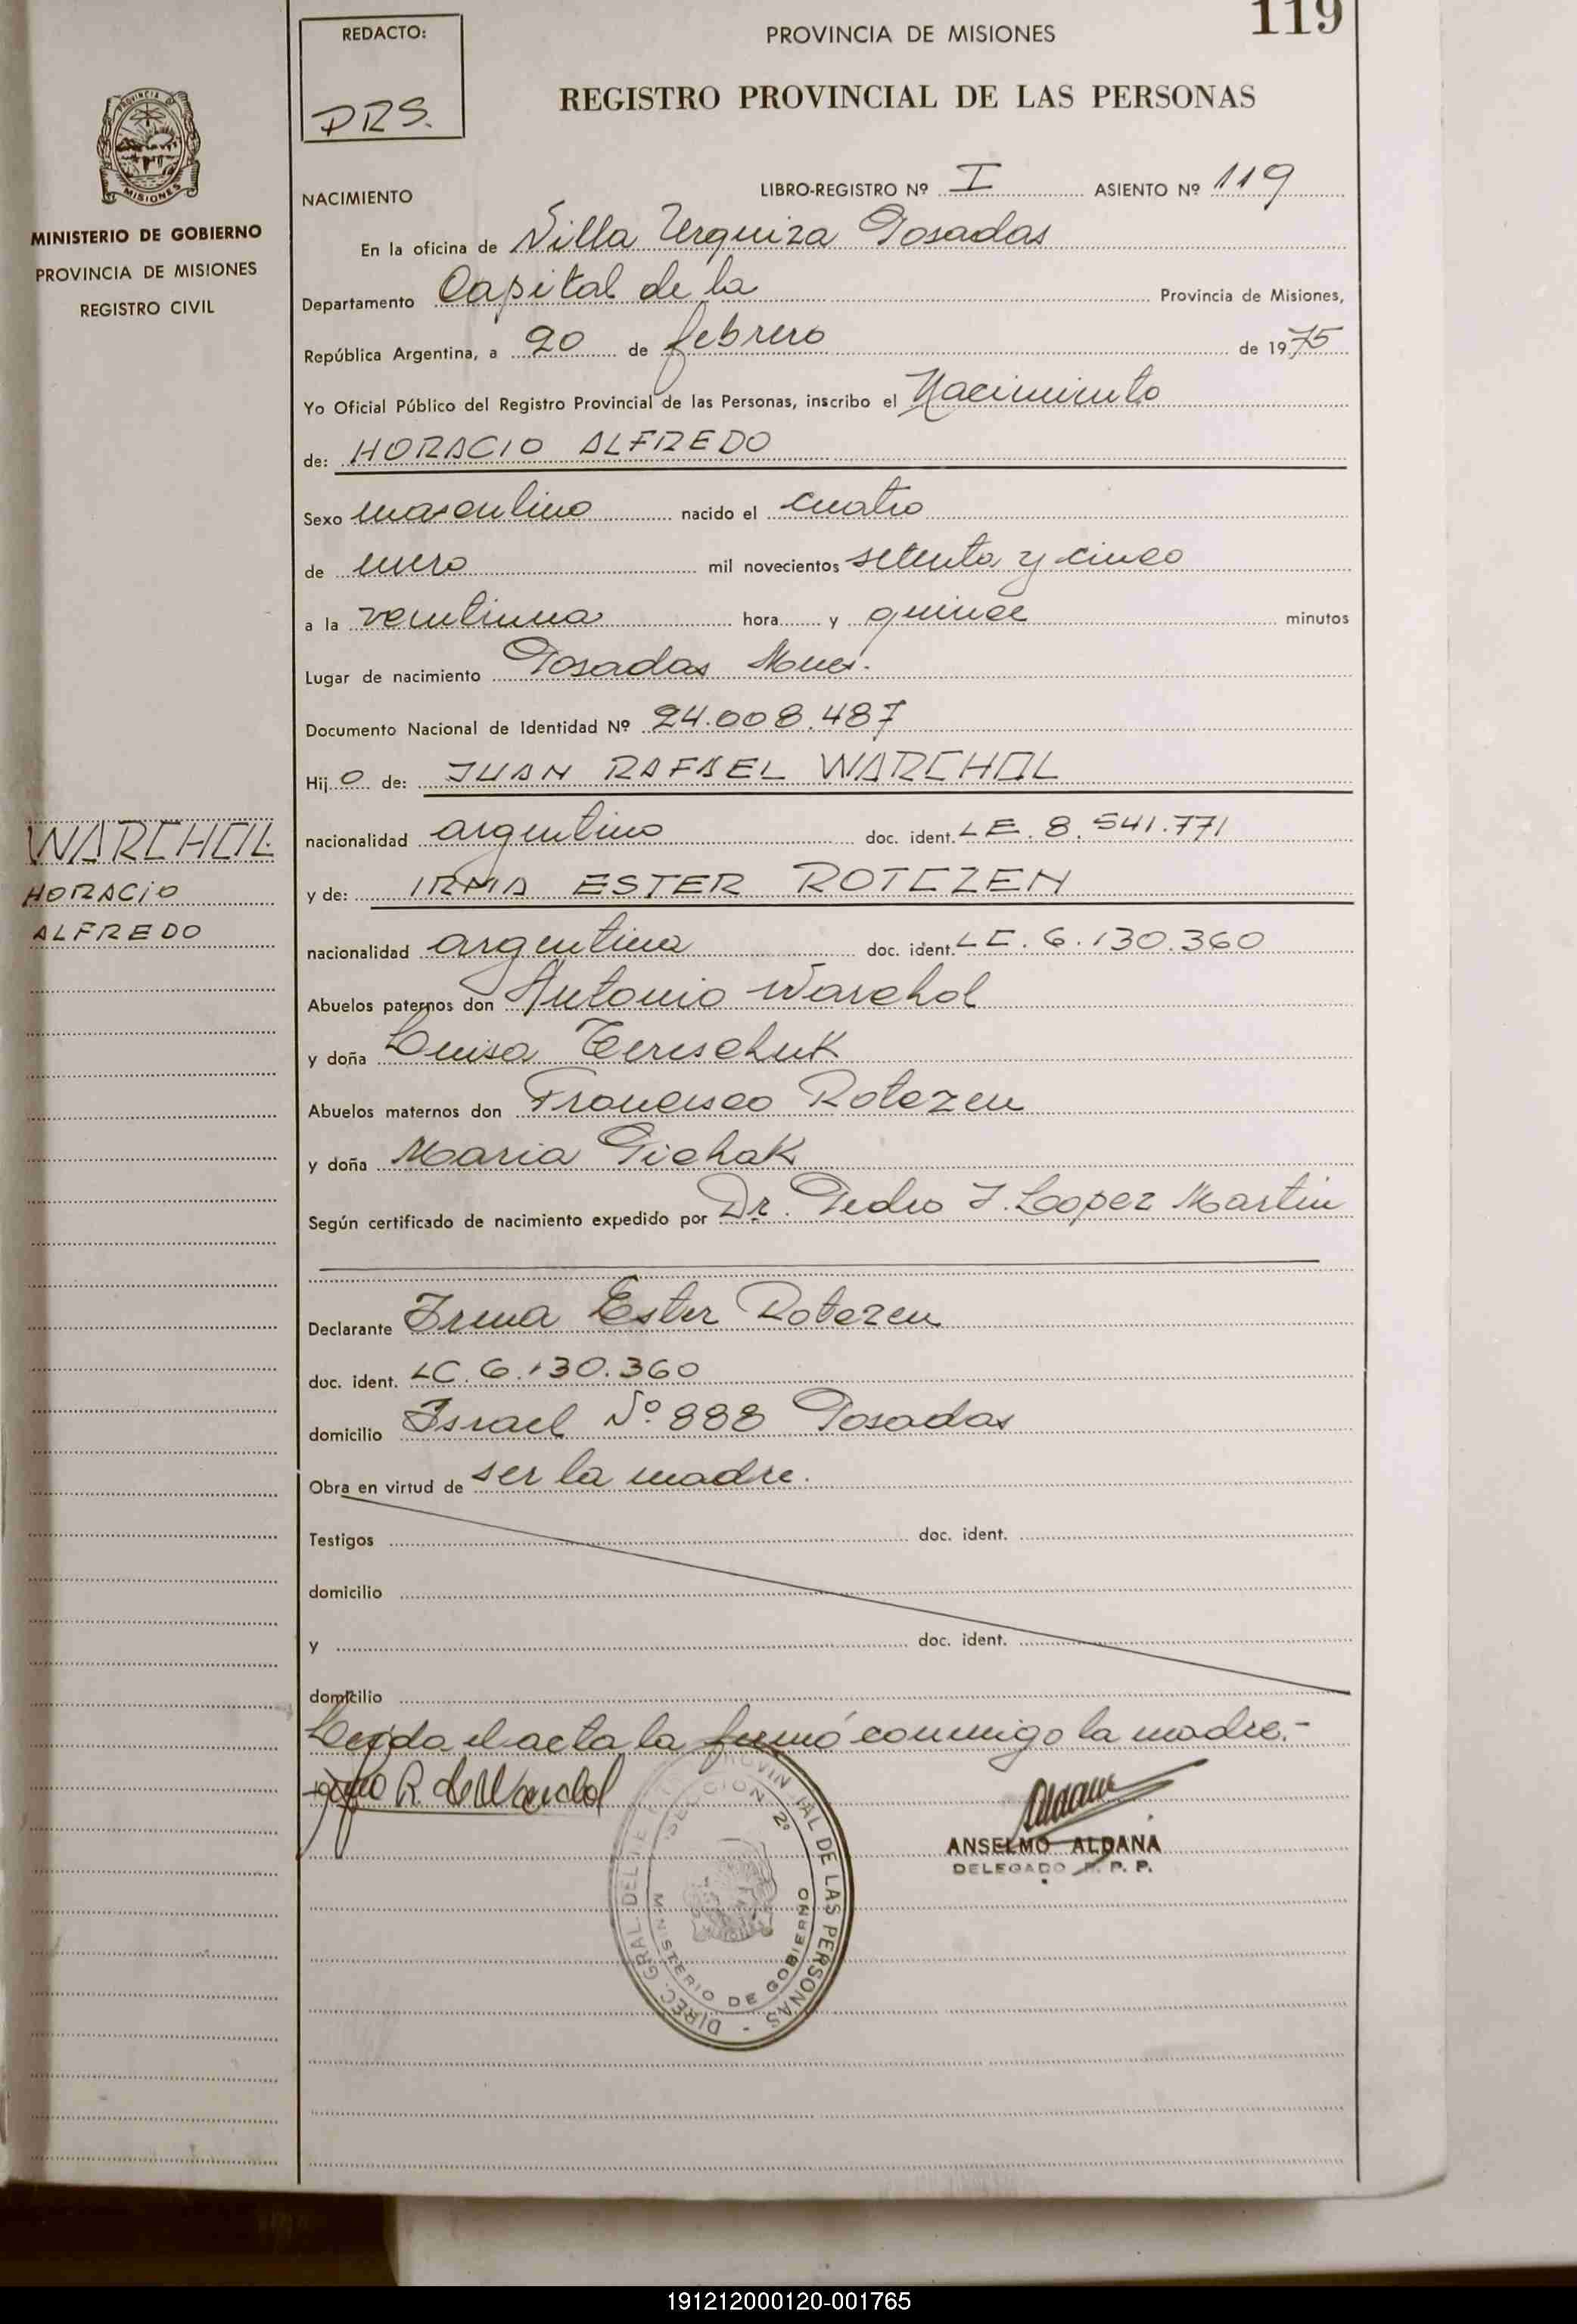 119
REDACTO:
DRS.
PROVINCIA DE MISIONES
REGISTRO PROVINCIAL DE LAS PERSONAS
PROVINCIA DE
MISIONES
MINISTERIO DE GOBIERNO
PROVINCIA DE MISIONES
REGISTRO CIVIL
NACIMIENTO
LIBRO-REGISTRO Nº I ASIENTO Nº 119
En la oficina de Villa Urquiza Posadas
Departamento Capital de la Provincia de Misiones,
República Argentina, a 20 de febrero de 1975
Yo Oficial Público del Registro Provincial de las Personas, inscribo el Nacimiento
de: HORACIO ALFREDO
Sexo masculino nacido el cuatro
de enero mil novecientos setenta y cinco
a la veintiuna hora y quince minutos
Lugar de nacimiento Posadas Mnes.
Documento Nacional de Identidad Nº 24.008.487
Hijo de: JUAN RAFAEL WARCHOL
nacionalidad argentino doc. ident. LE. 8.541.771
y de: IRMA ESTER ROTCZEN
nacionalidad argentina doc. ident. LC. 6.130.360
WARCHOL
HORACIO
ALFREDO
Abuelos paternos don Antonio Warchol
y doña Luisa Tereschuk
Abuelos maternos don Francisco Rotczen
y doña Maria Pichak
Según certificado de nacimiento expedido por Dr. Pedro J. Lopez Martin
Declarante Irma Ester Rotczen
doc. ident. LC. 6.130.360
domicilio Israel Nº 888 Posadas
Obra en virtud de ser la madre.
Testigos doc. ident.
domicilio
y doc. ident.
domicilio
Leída el acta la firmó conmigo la madre.-
R. de Warchol
ANSELMO ALDANA
DELEGADO R. P. P.
DIREC. GRAL DEL REG. PROVINCIAL DE LAS PERSONAS -
SECCION 2º
MINISTERIO DE GOBIERNO
191212000120-001765